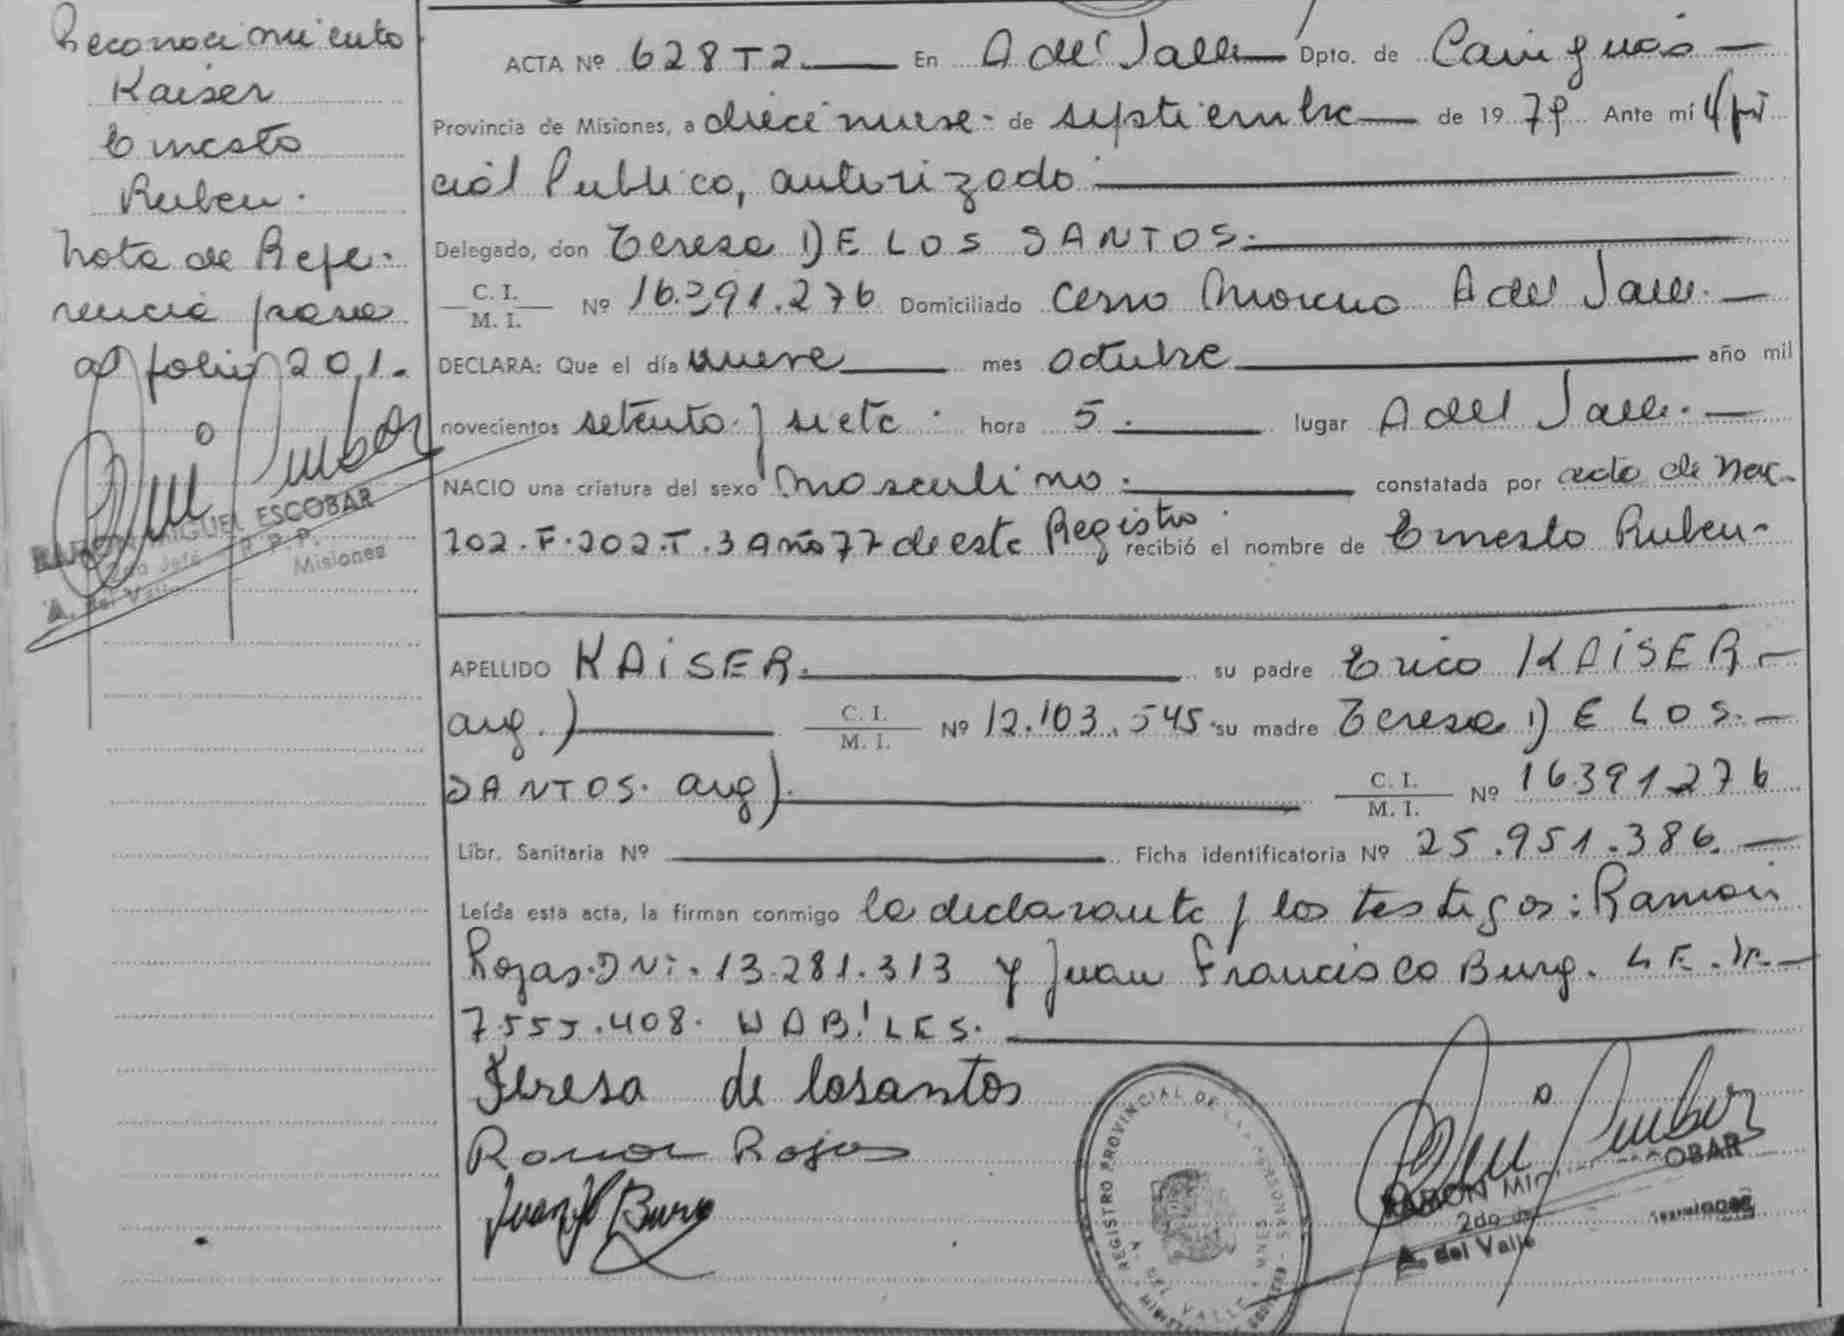 Reconocimiento
Kaiser
Ernesto
Ruben.
Nota de Refe-
rencia pasa
al folio 201.
RAMON MIGUEL ESCOBAR
2do Jefe R.P.P.
A. del Valle Misiones
ACTA Nº 628 T2 En A del Valle Dpto. de Cainguás
Provincia de Misiones, a diecinueve de septiembre de 1979 Ante mi Ofi
cial Publico, autorizado
Delegado, don Teresa DE LOS SANTOS.
C. I.
M. I. Nº 16.391.276 Domiciliado Cerro Moreno A del Valle.
DECLARA: Que el día nueve mes octubre año mil
novecientos setenta y siete hora 5. lugar A del Valle.
NACIO una criatura del sexo masculino. constatada por acta de Nac.
202. F. 202. T. 3 Año 77 de este Registro. recibió el nombre de Ernesto Ruben-
APELLIDO KAISER. su padre Erico KAISER
arg.) C. I.
M. I. Nº 12.103.545. su madre Teresa DE LOS.
SANTOS. arg). C. I.
M. I. Nº 16391276
Libr. Sanitaria Nº Ficha identificatoria Nº 25.951.386.
Leída esta acta, la firman conmigo la declarante y los testigos: Ramon
Rojas. DNi. 13.281.313 y Juan Francisco Burg. L E.
7.555.408. HABiLES.
Teresa de losantos
Ramon Rojas
Juan F Burg
REGISTRO PROVINCIAL DE LAS PERSONAS
A. DEL VALLE MNES
RAMON MIGUEL ESCOBAR
2do Misiones
A. del Valle